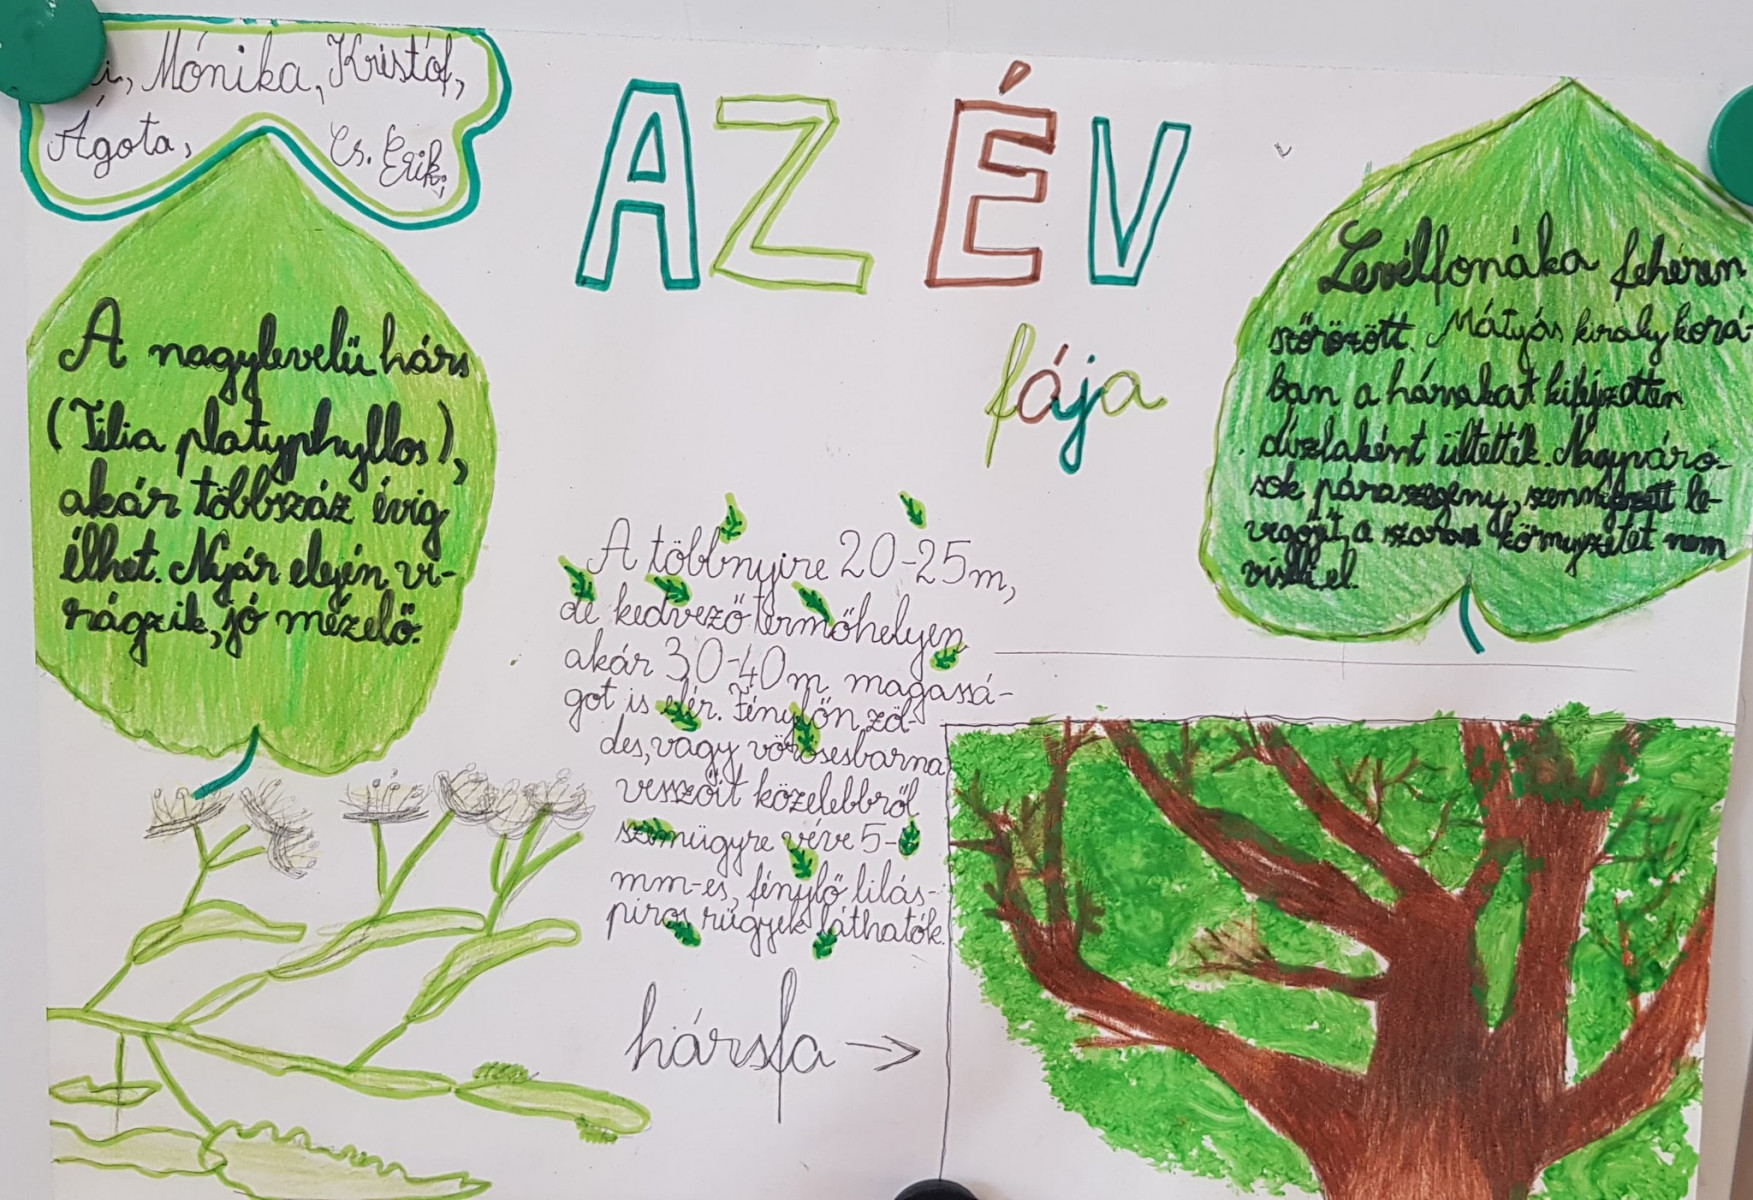 Mónika, Kristóf,
Ágota, Cs. Erik,
AZ ÉV
fája
A nagylevelű hárs
(Tilia platyphyllos),
akár többszáz évig
élhet. Nyár elején vi-
rágzik, jó mézelő.
A többnyire 20-25m,
de kedvező termőhelyen
akár 30-40m magassá-
got is elér. Fénylőn zöl-
des, vagy vörösesbarna
vesszőit közelebbről
szemügyre véve 5-
mm-es, fénylő lilás-
piros rügyek láthatók.
hársfa →
Levélfonáka fehéren
szőrözött. Mátyás király korá-
ban a hársakat kifejezetten
díszfaként ültették. Nagyváro-
sok páraszegény, szennyezett le-
vegőjét, a száraz környezetet nem
viseli el.